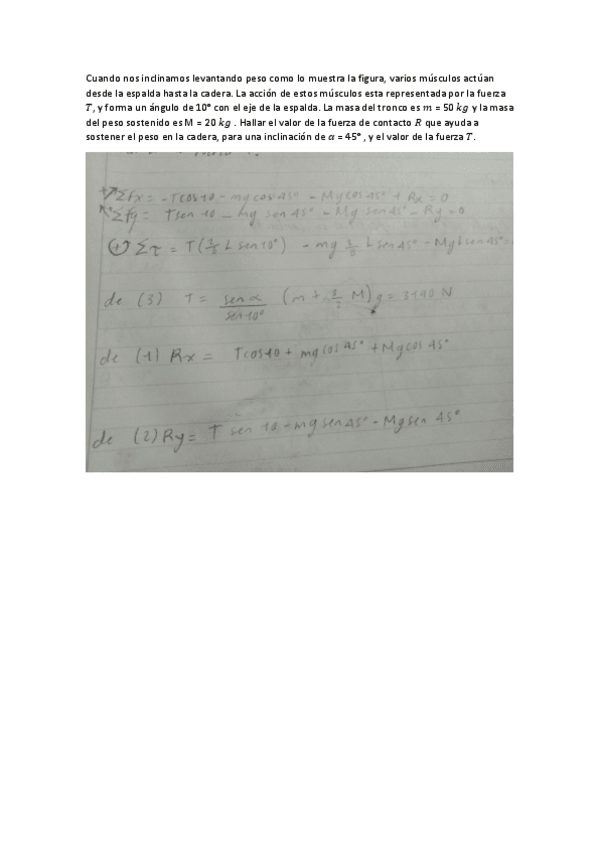 Cuando nos inclinamos levantando peso como lo muestra la figura, varios músculos actúan
desde la espalda hasta la cadera. La acción de estos músculos esta representada por la fuerza
T, y forma un ángulo de 10° con el eje de la espalda. La masa del tronco es m = 50 kg y la masa
del peso sostenido es M = 20 kg . Hallar el valor de la fuerza de contacto R que ayuda a
sostener el peso en la cadera, para una inclinación de α = 45° , y el valor de la fuerza T.
Σfx = - Tcos10 - mg cos45° - Mg cos45° + Rx = 0
Σfy = Tsen 10 - mg sen 45° - Mg sen45° - Ry = 0
Στ = T( L sen10°) - mg L sen45° - MgL sen45° =
de (3) T = sen α / sen 10° (m + M) g = 3190 N
de (1) Rx = Tcos10 + mg cos 45° + Mg cos 45°
de (2) Ry = T sen 10 - mg sen 45° - Mg sen 45°